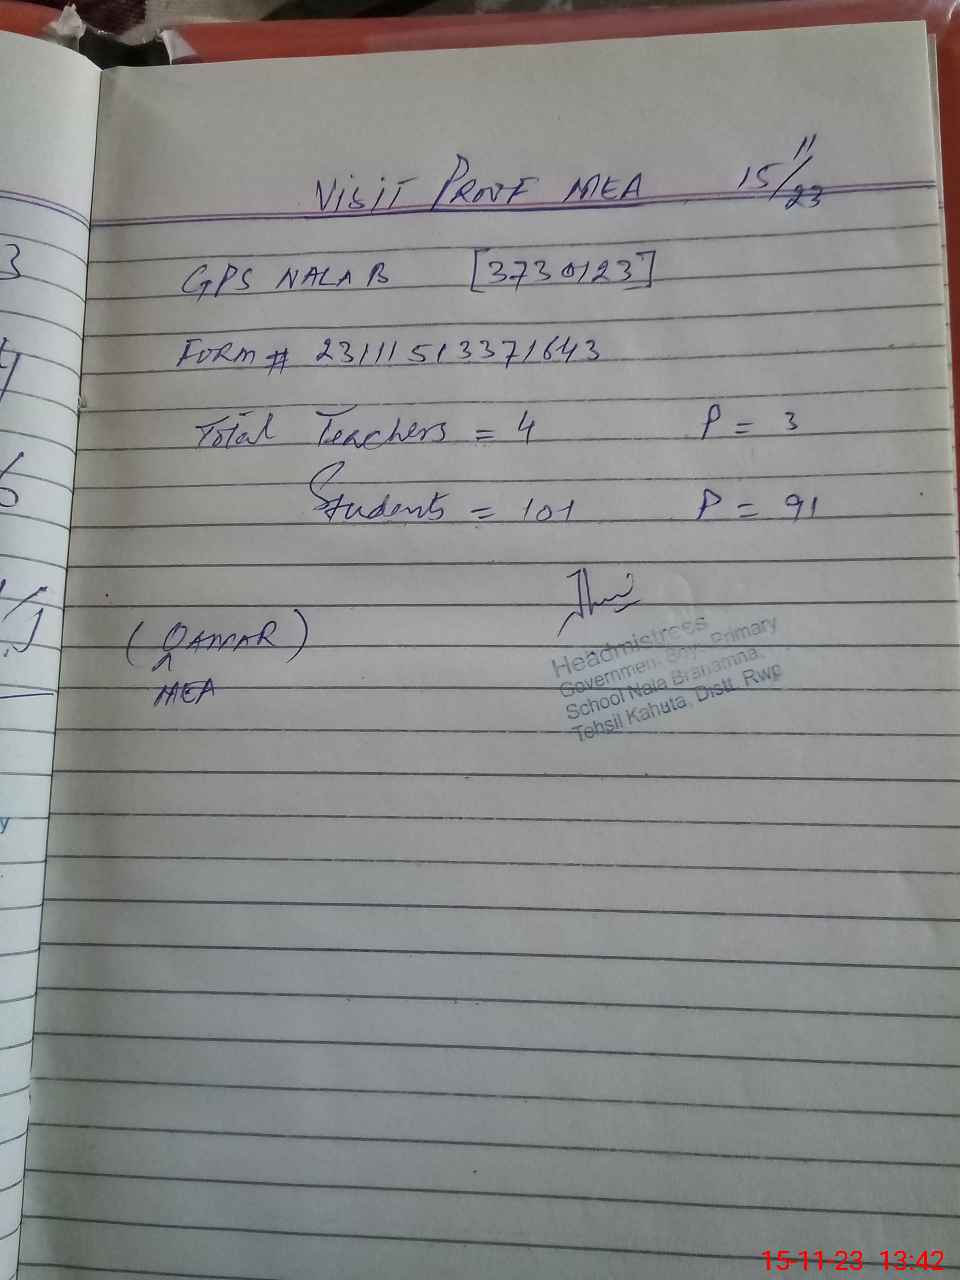 VISIT PROVE MEA 15/11/23
GPS NALA B [3730123]
FORM # 23111513371643
Total Teachers = 4 P = 3
Students = 101 P = 91
(QAMAR)
MEA
Headmistress
Government Boys Primary
School Nala Brahamna,
Tehsil Kahuta, Distt. Rwp
15-11-23 13:42